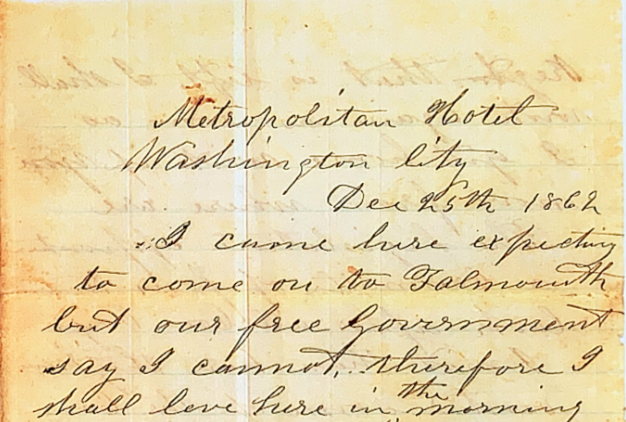 Metropolitan Hotel
Washington City
Dec 25th 1862
I came here expecting
to come on to Falmouth
but our free Government
say I cannot, therefore I
shall leve here in the morning